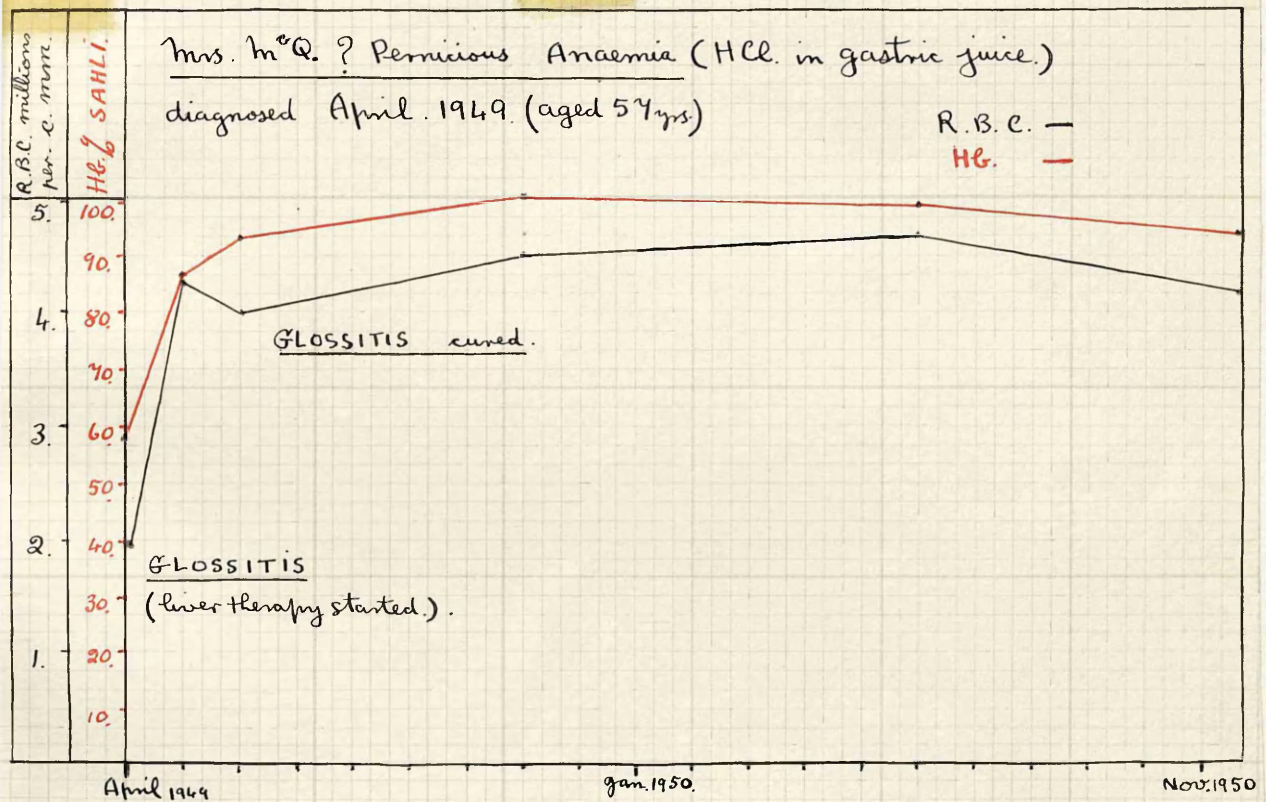 R.B.C. millions
per. c. mm.
Hb. % SAHLI.
Mrs. McQ. ? Pernicious Anaemia (HCl. in gastric juice.)
diagnosed April. 1949. (aged 57 yrs.)
R.B.C. —
Hb. —
5. 100.
90.
4. 80.
GLOSSITIS cured.
70.
3. 60.
50.
2. 40.
GLOSSITIS
30. (liver therapy started.).
1. 20.
10.
April 1949 Jan. 1950. Nov. 1950